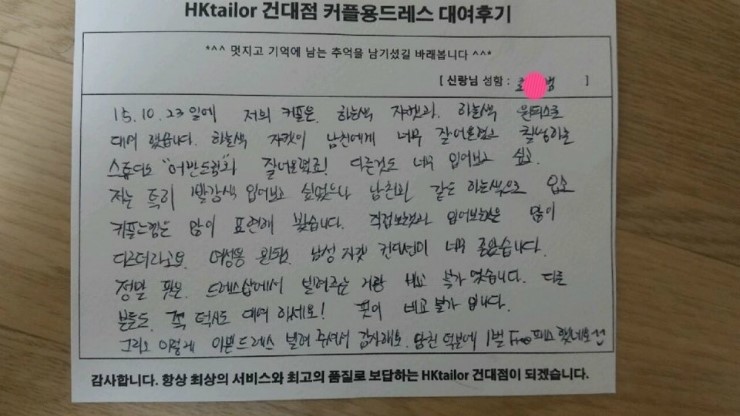 HKtailor 건대점 커플용드레스 대여후기
*^^ 멋지고 기억에 남는 추억을 남기셨길 바래봅니다 ^^*
[ 신랑님 성함 : 범 ]
15.10.23일에 저희 커플은 하늘색 쟈켓과 하늘색 원피스로
대여 했습니다. 하늘색 쟈켓이 남친에게 너무 잘어울렸고 촬영하는
스튜디오 잘어울렸죠! 다른것도 너무 입어보고 싶고.
저는 특히 빨강색 입어보고 싶었으나 남친과 같은 하늘색으로 입고
커플느낌은 많이 표현해 봤습니다. 직접보는거와 입어보는건 많이
다르더라고요. 여성용 원피스, 남성 자켓 컨디션이 너무 좋았습니다.
정말 드레스샵에서 빌려주는 거랑 비교 불가 였습니다. 다른
분들도 꼭 대여 하세요! 비교 불가 입니다.
그리고 이렇게 이쁜드레스 빌려 주셔서 감사해요. 남친 덕분에 1벌
감사합니다. 항상 최상의 서비스와 최고의 품질로 보답하는 HKtailor 건대점이 되겠습니다.